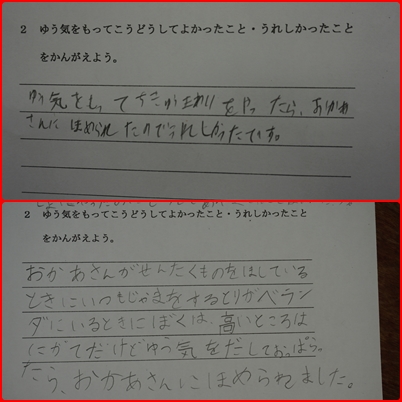 2 ゆう気をもってこうどうしてよかったこと・うれしかったこと
をかんがえよう。
ゆう気をもって をやったら、おかあ
さんに ほめられたのでうれしかたです。
2 ゆう気をもってこうどうしてよかったこと・うれしかったこと
をかんがえよう。
おかあさんがせんたくものをほしている
ときにいつもじゃまをするとりがベラン
ダにいるときにぼくは、高いところは
にがてだけどゆう気をだしておっぱらっ
たら、おかあさんにほめられました。